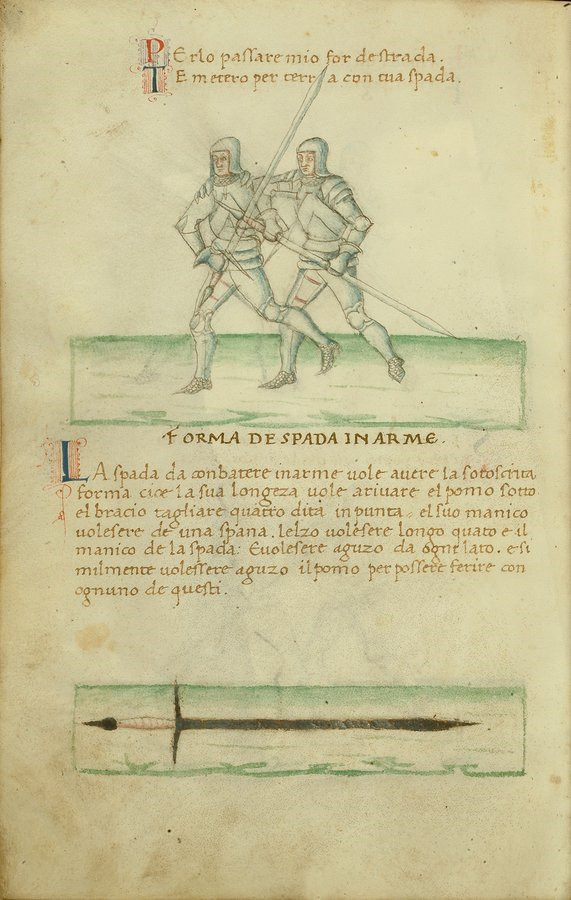 Perlo passare mio for de strada.
Te metero per terra con tua spada.
FORMA DE SPADA IN ARME.
LA spada da conbatere inarme vole avere la sotoscrita
forma cioe la sua longeza vole arivare el pomo sotto
el bracio tagliare quatro dita in punta, el suo manico
volesere de una spana. lelzo volesere longo quato e il
manico de la spada: E volesere aguzo da ogne lato. e si
milmente volessere aguzo il pomo per possere ferire con
ognuno de questi.